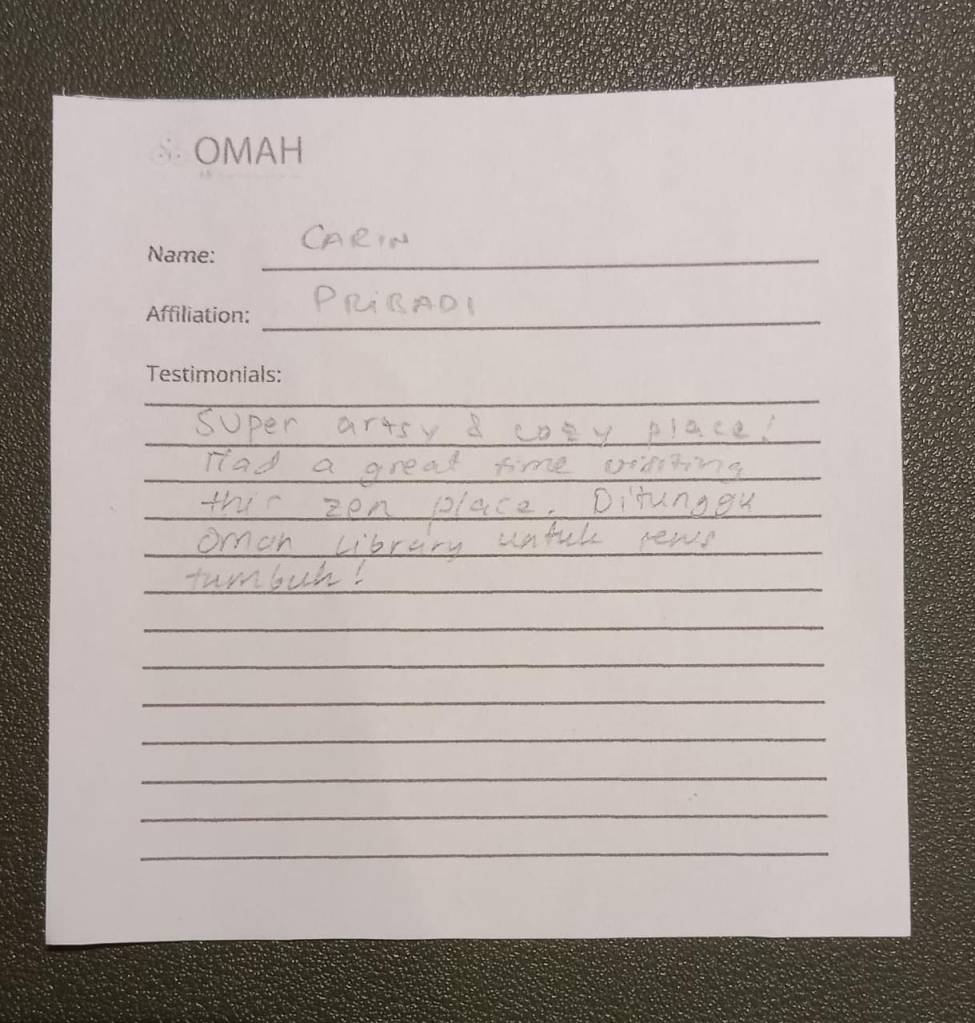 OMAH
Name: CARIN
Affiliation: PRIBADI
Testimonials:
Super artsy & cozy place!
Had a great time visiting
this zen place. Ditunggu
Omah Library untuk terus
tumbuh!